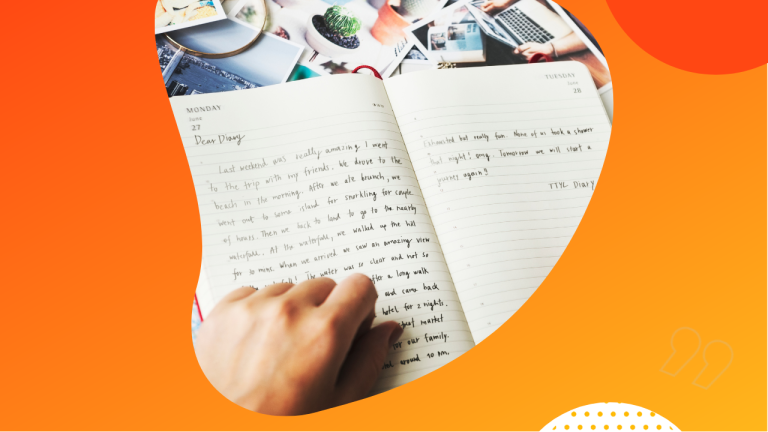 MONDAY
June
27
Dear Diary
Last weekend was really amazing. I went
to the trip with my friends. We drove to the
beach in the morning. After we ate brunch, we
went out to some island for snorkling for couple
of hours. Then we back to land to go to the nearby
waterfalls. At the waterfalls, we walked up the hill
for 20 mins. When we arrived we saw an amazing view
The water was so clear and not so
after a long walk
and came back
hotel for 2 nights.
market
for our family.
around 10 pm.
TUESDAY
June
28
Exhausted but really fun. None of us took a shower
that night! omg. Tomorrow we will start a
journey again!
TTYL Diary